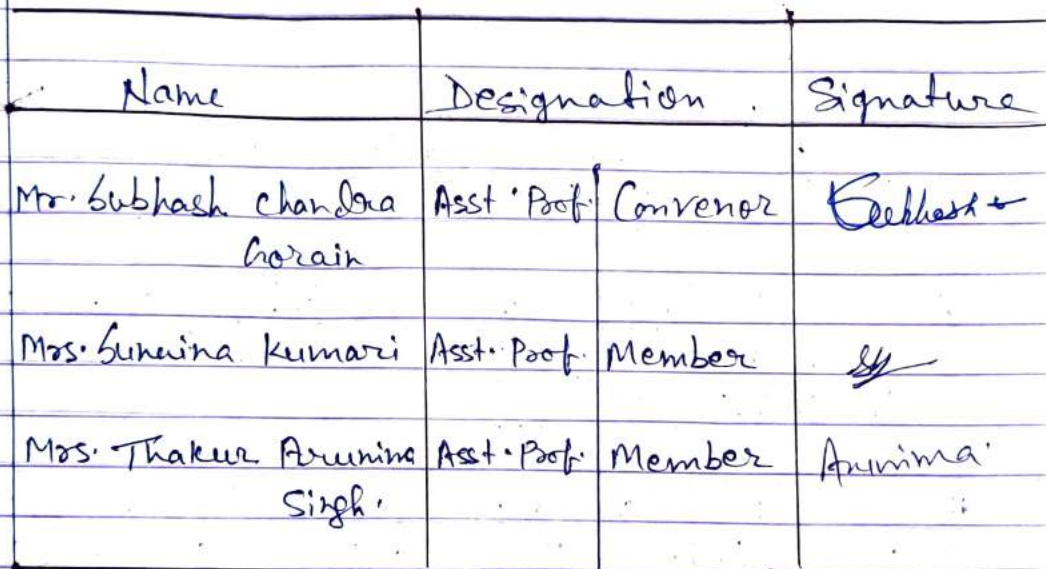 Name Designation. Signature
Mr. Subhash Chandra Asst. Prof. Convenor Subhash
Gorain
Mrs. Sunaina Kumari Asst. Prof. Member
Mrs. Thakur Arunima Asst. Prof. Member Arunima
Singh.